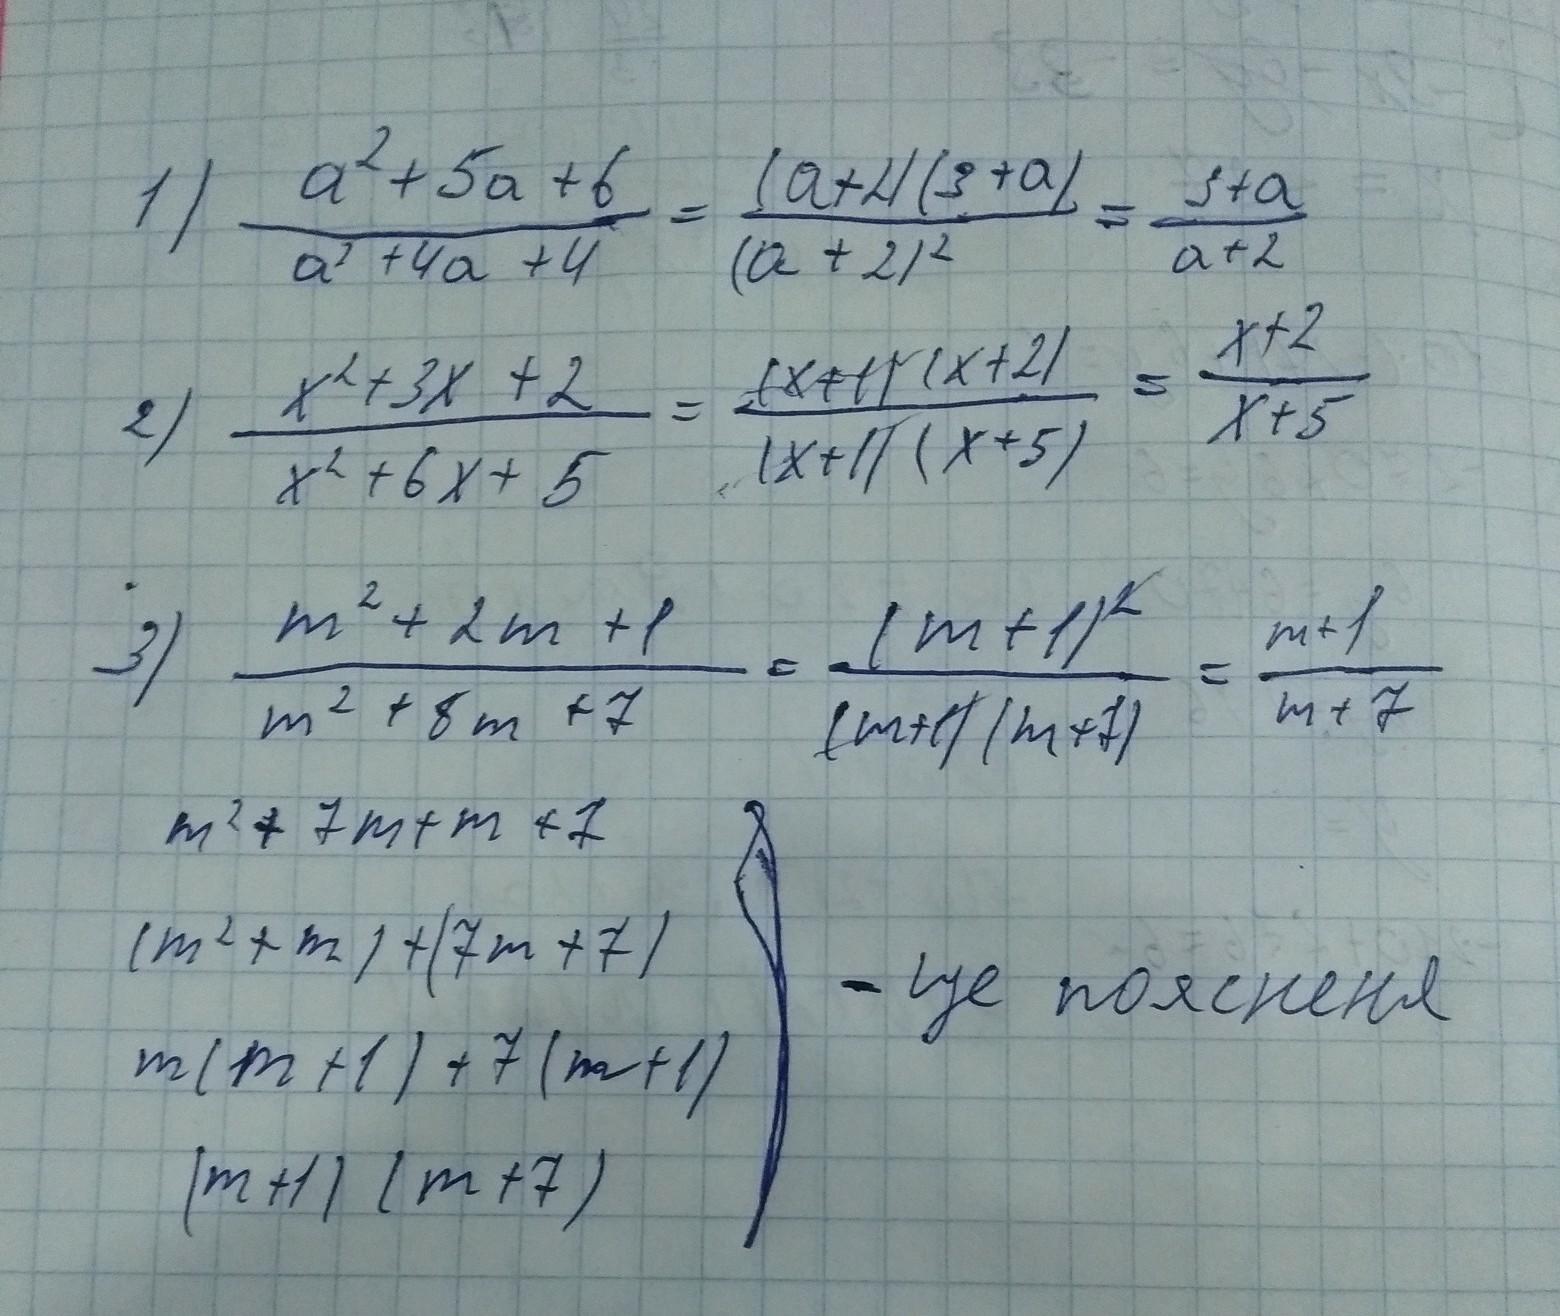 1) a²+5a+6 / a²+4a+4 = (a+2)(3+a) / (a+2)² = 3+a / a+2
2) x²+3x+2 / x²+6x+5 = (x+1)(x+2) / (x+1)(x+5) = x+2 / x+5
3) m²+2m+1 / m²+8m+7 = (m+1)² / (m+1)(m+7) = m+1 / m+7
m²+7m+m+7
(m²+m)+(7m+7)
m(m+1)+7(m+1)
(m+1)(m+7)
- це поясненя